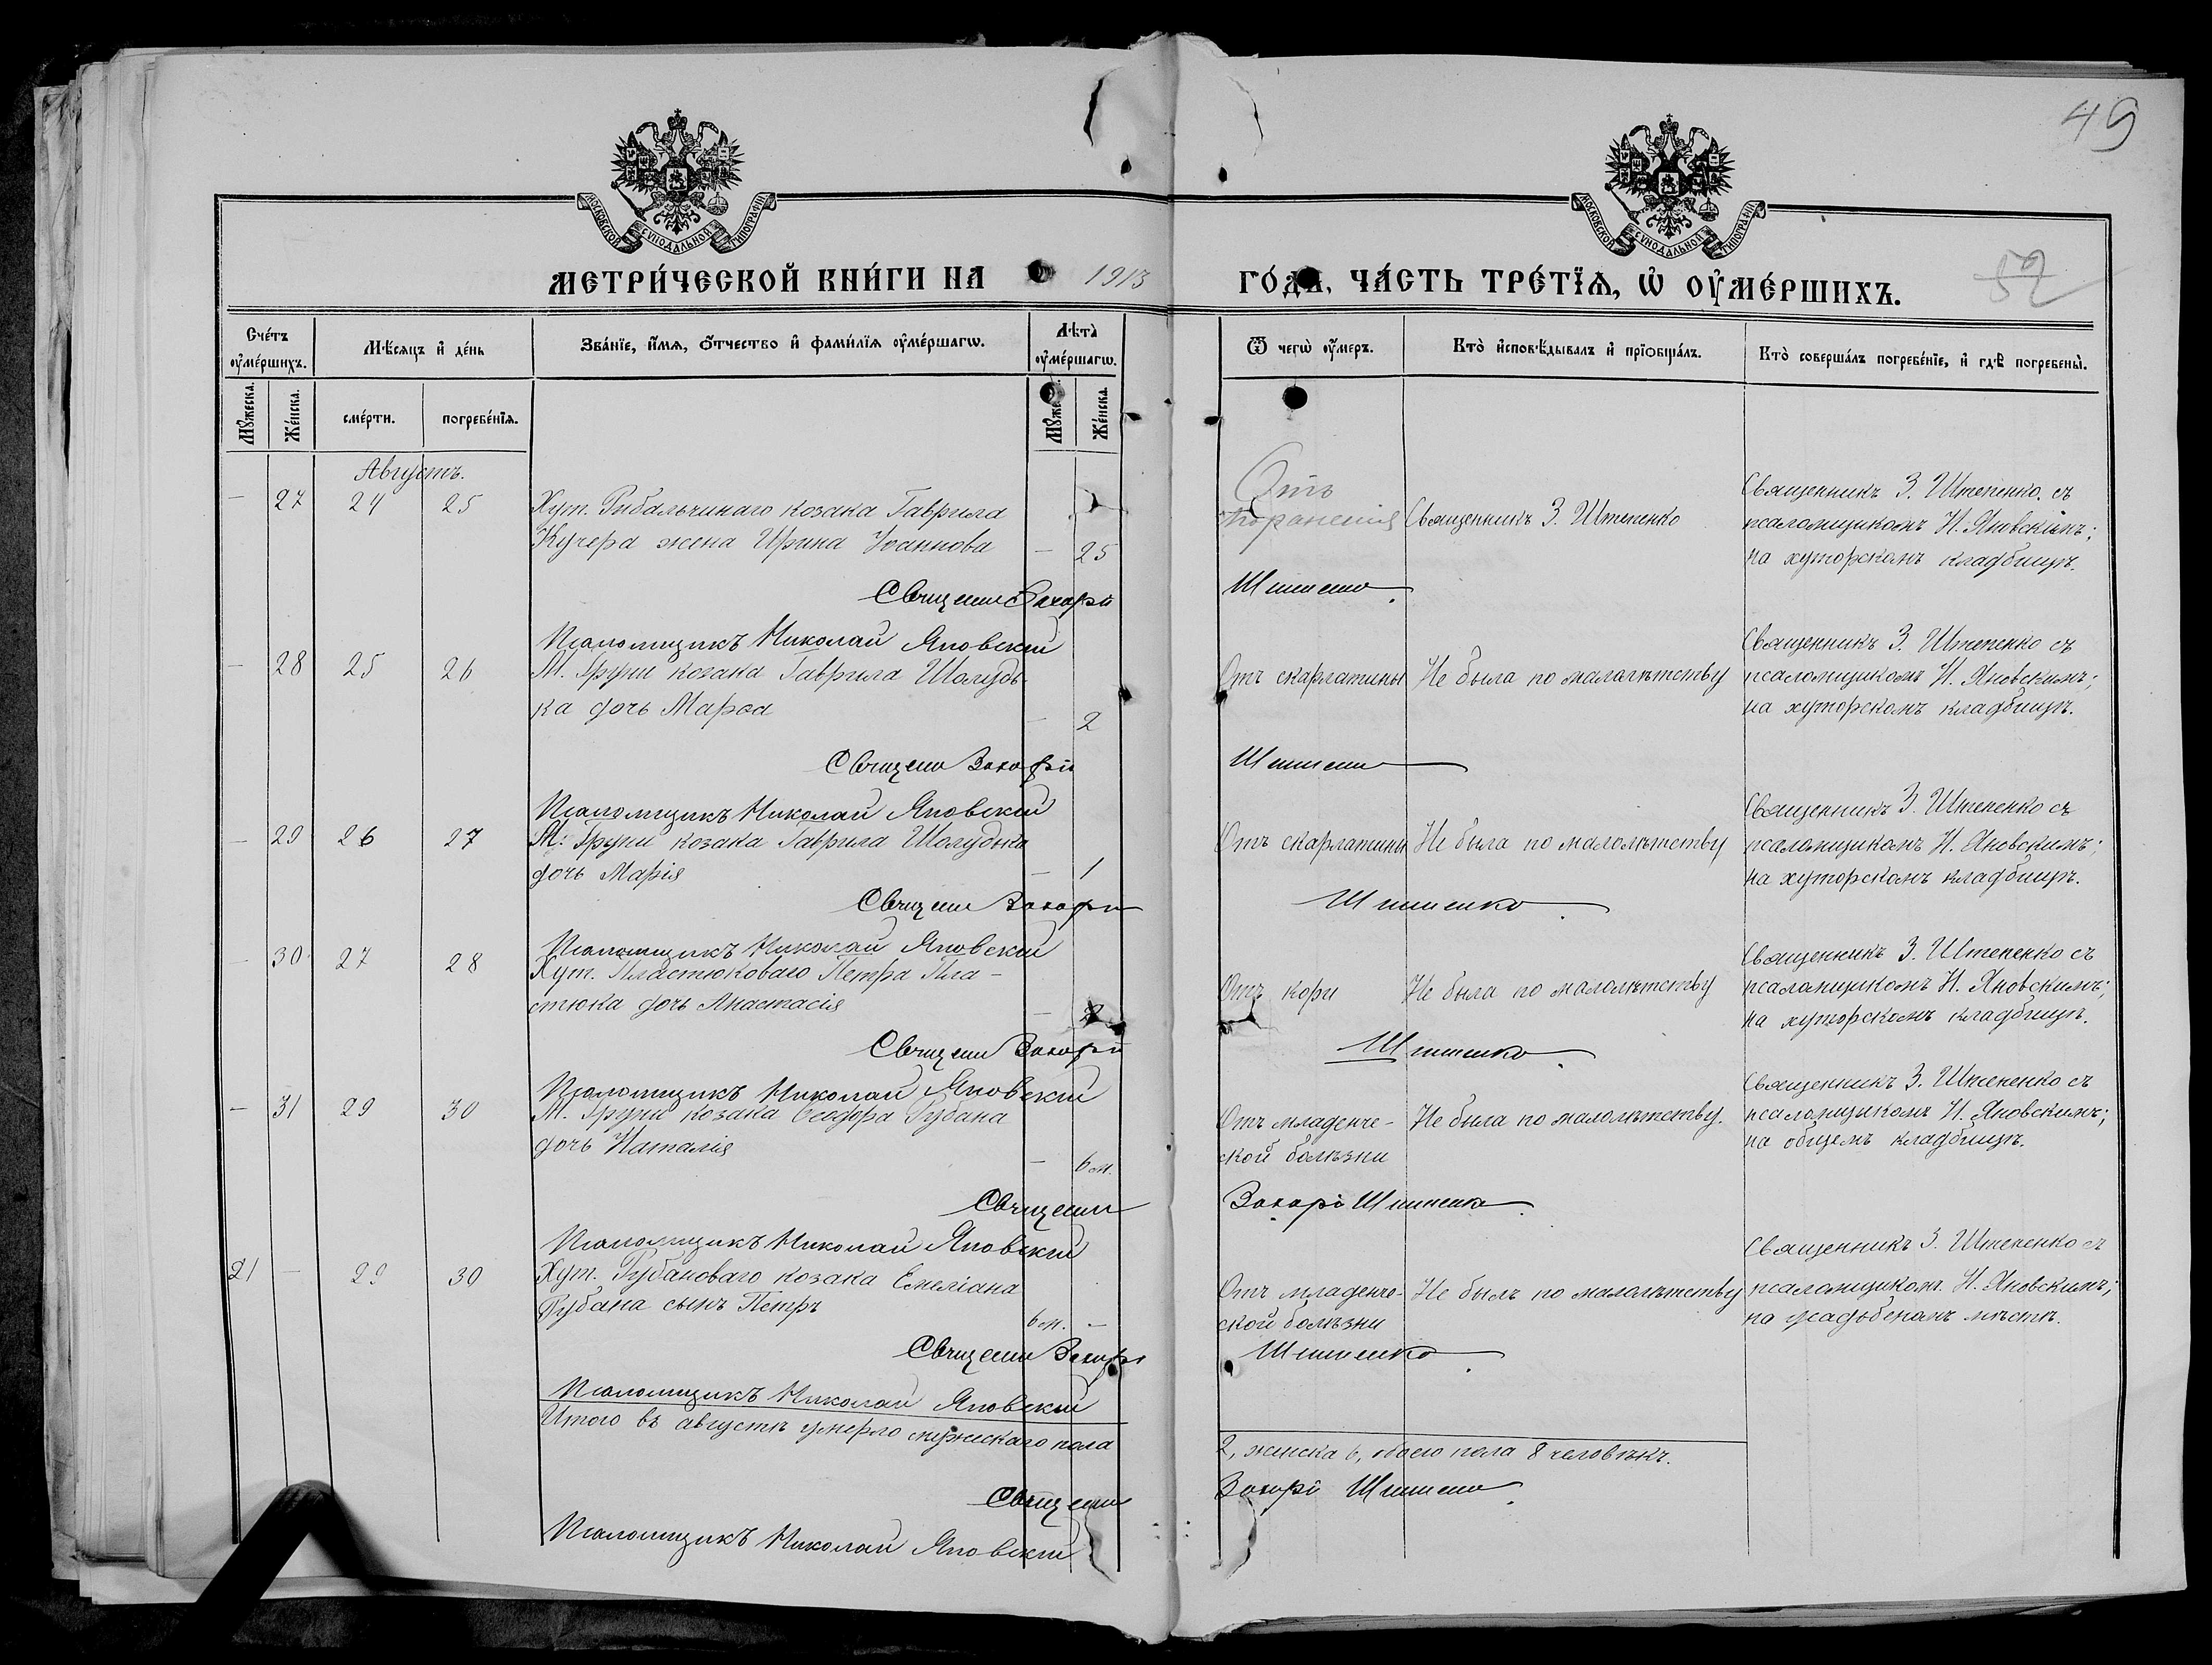 49
МОСКОВСКОЙ СУНОДАЛЬНОЙ ТИПОГРАФІИ
МОСКОВСКОЙ СУНОДАЛЬНОЙ ТИПОГРАФІИ
МЕТРИ́ЧЕСКОЙ КНИ́ГИ НА 1913 ГО́ДЪ, ЧА́СТЬ ТРЕ́ТЇѦ, Ѡ҆ ОУ҆МЕ́РШИХЪ.
52
Сче́тъ оу҆ме́ршихъ.
Мѣ́сѧцъ и҆ де́нь
Зва́нїе, и҆́мѧ, ѻ҆́тчество и҆ фами́лїѧ оу҆ме́ршагѡ.
Лѣ́та̀ оу҆ме́ршагѡ.
Ѿ чегѡ̀ оу҆́меръ.
Кто̀ и҆сповѣ́дывалъ и҆ прїѻбща́лъ.
Кто̀ соверша́лъ погребе́нїе, и҆ гдѣ̀ погребены̀.
Мꙋ́жеска.
Же́нска.
сме́рти.
погребе́нїѧ.
Мꙋ́же
Же́нска.
Августъ.
— 27 24 25
Хут. Рибальчинаго козака Гаврила
Кучера жена Ирина Іоаннова — 25
Отъ
Священникъ З. Штепенко
Священникъ З. Штепенко съ
псаломщикомъ Н. Яновскимъ;
на хуторскомъ кладбищѣ.
Священ Захарій
Штепенко
Псаломщикъ Николай Яновскій
— 28 25 26
М. Груни козака Гаврила Шолудь-
ка дочь Марѳа — 2
Отъ скарлатины
Не была по малолѣтству
Священникъ З. Штепенко съ
псаломщикомъ Н. Яновскимъ;
на хуторскомъ кладбищѣ.
Священ Захарій
Штепенко
Псаломщикъ Николай Яновскій
— 29 26 27
М. Груни козака Гаврила Шолудька
дочь Марія — 1
Отъ скарлатины
Не была по малолѣтству
Священникъ З. Штепенко съ
псаломщикомъ Н. Яновскимъ;
на хуторскомъ кладбищѣ.
Священ Захарій
Штепенко
Псаломщикъ Николай Яновскій
— 30 27 28
Хут. Пластюковаго Петра Пла-
стюка дочь Анастасія —
Отъ кори
Не была по малолѣтству
Священникъ З. Штепенко съ
псаломщикомъ Н. Яновскимъ;
на хуторскомъ кладбищѣ.
Священ Захарій
Штепенко
Псаломщикъ Николай Яновскій
— 31 29 30
М. Груни козака Ѳеодора Рубана
дочь Наталія — 6 м.
Отъ младенче-
ской болѣзни
Не была по малолѣтству.
Священникъ З. Штепенко съ
псаломщикомъ Н. Яновскимъ;
на общемъ кладбищѣ.
Священ
Захарій Штепенко
Псаломщикъ Николай Яновскій
21 — 29 30
Хут. Рубановаго козака Емеліана
Рубана сынъ Петръ 6 м. —
Отъ младенче-
ской болѣзни
Не былъ по малолѣтству
Священникъ З. Штепенко съ
псаломщикомъ Н. Яновскимъ;
на усадьбеномъ мѣстѣ.
Священ Захарій
Штепенко
Псаломщикъ Николай Яновскій
Итого въ августѣ умерло мужескаго пола
2, женска 6, обоего пола 8 человѣкъ.
Священ
Захарій Штепенко
Псаломщикъ Николай Яновскій